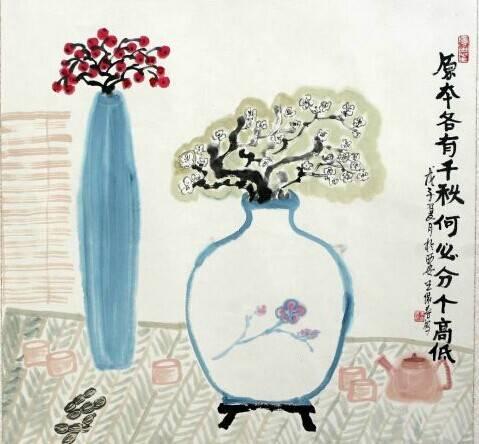 原本各有千秋何必分个高低
戊子夏月於西安